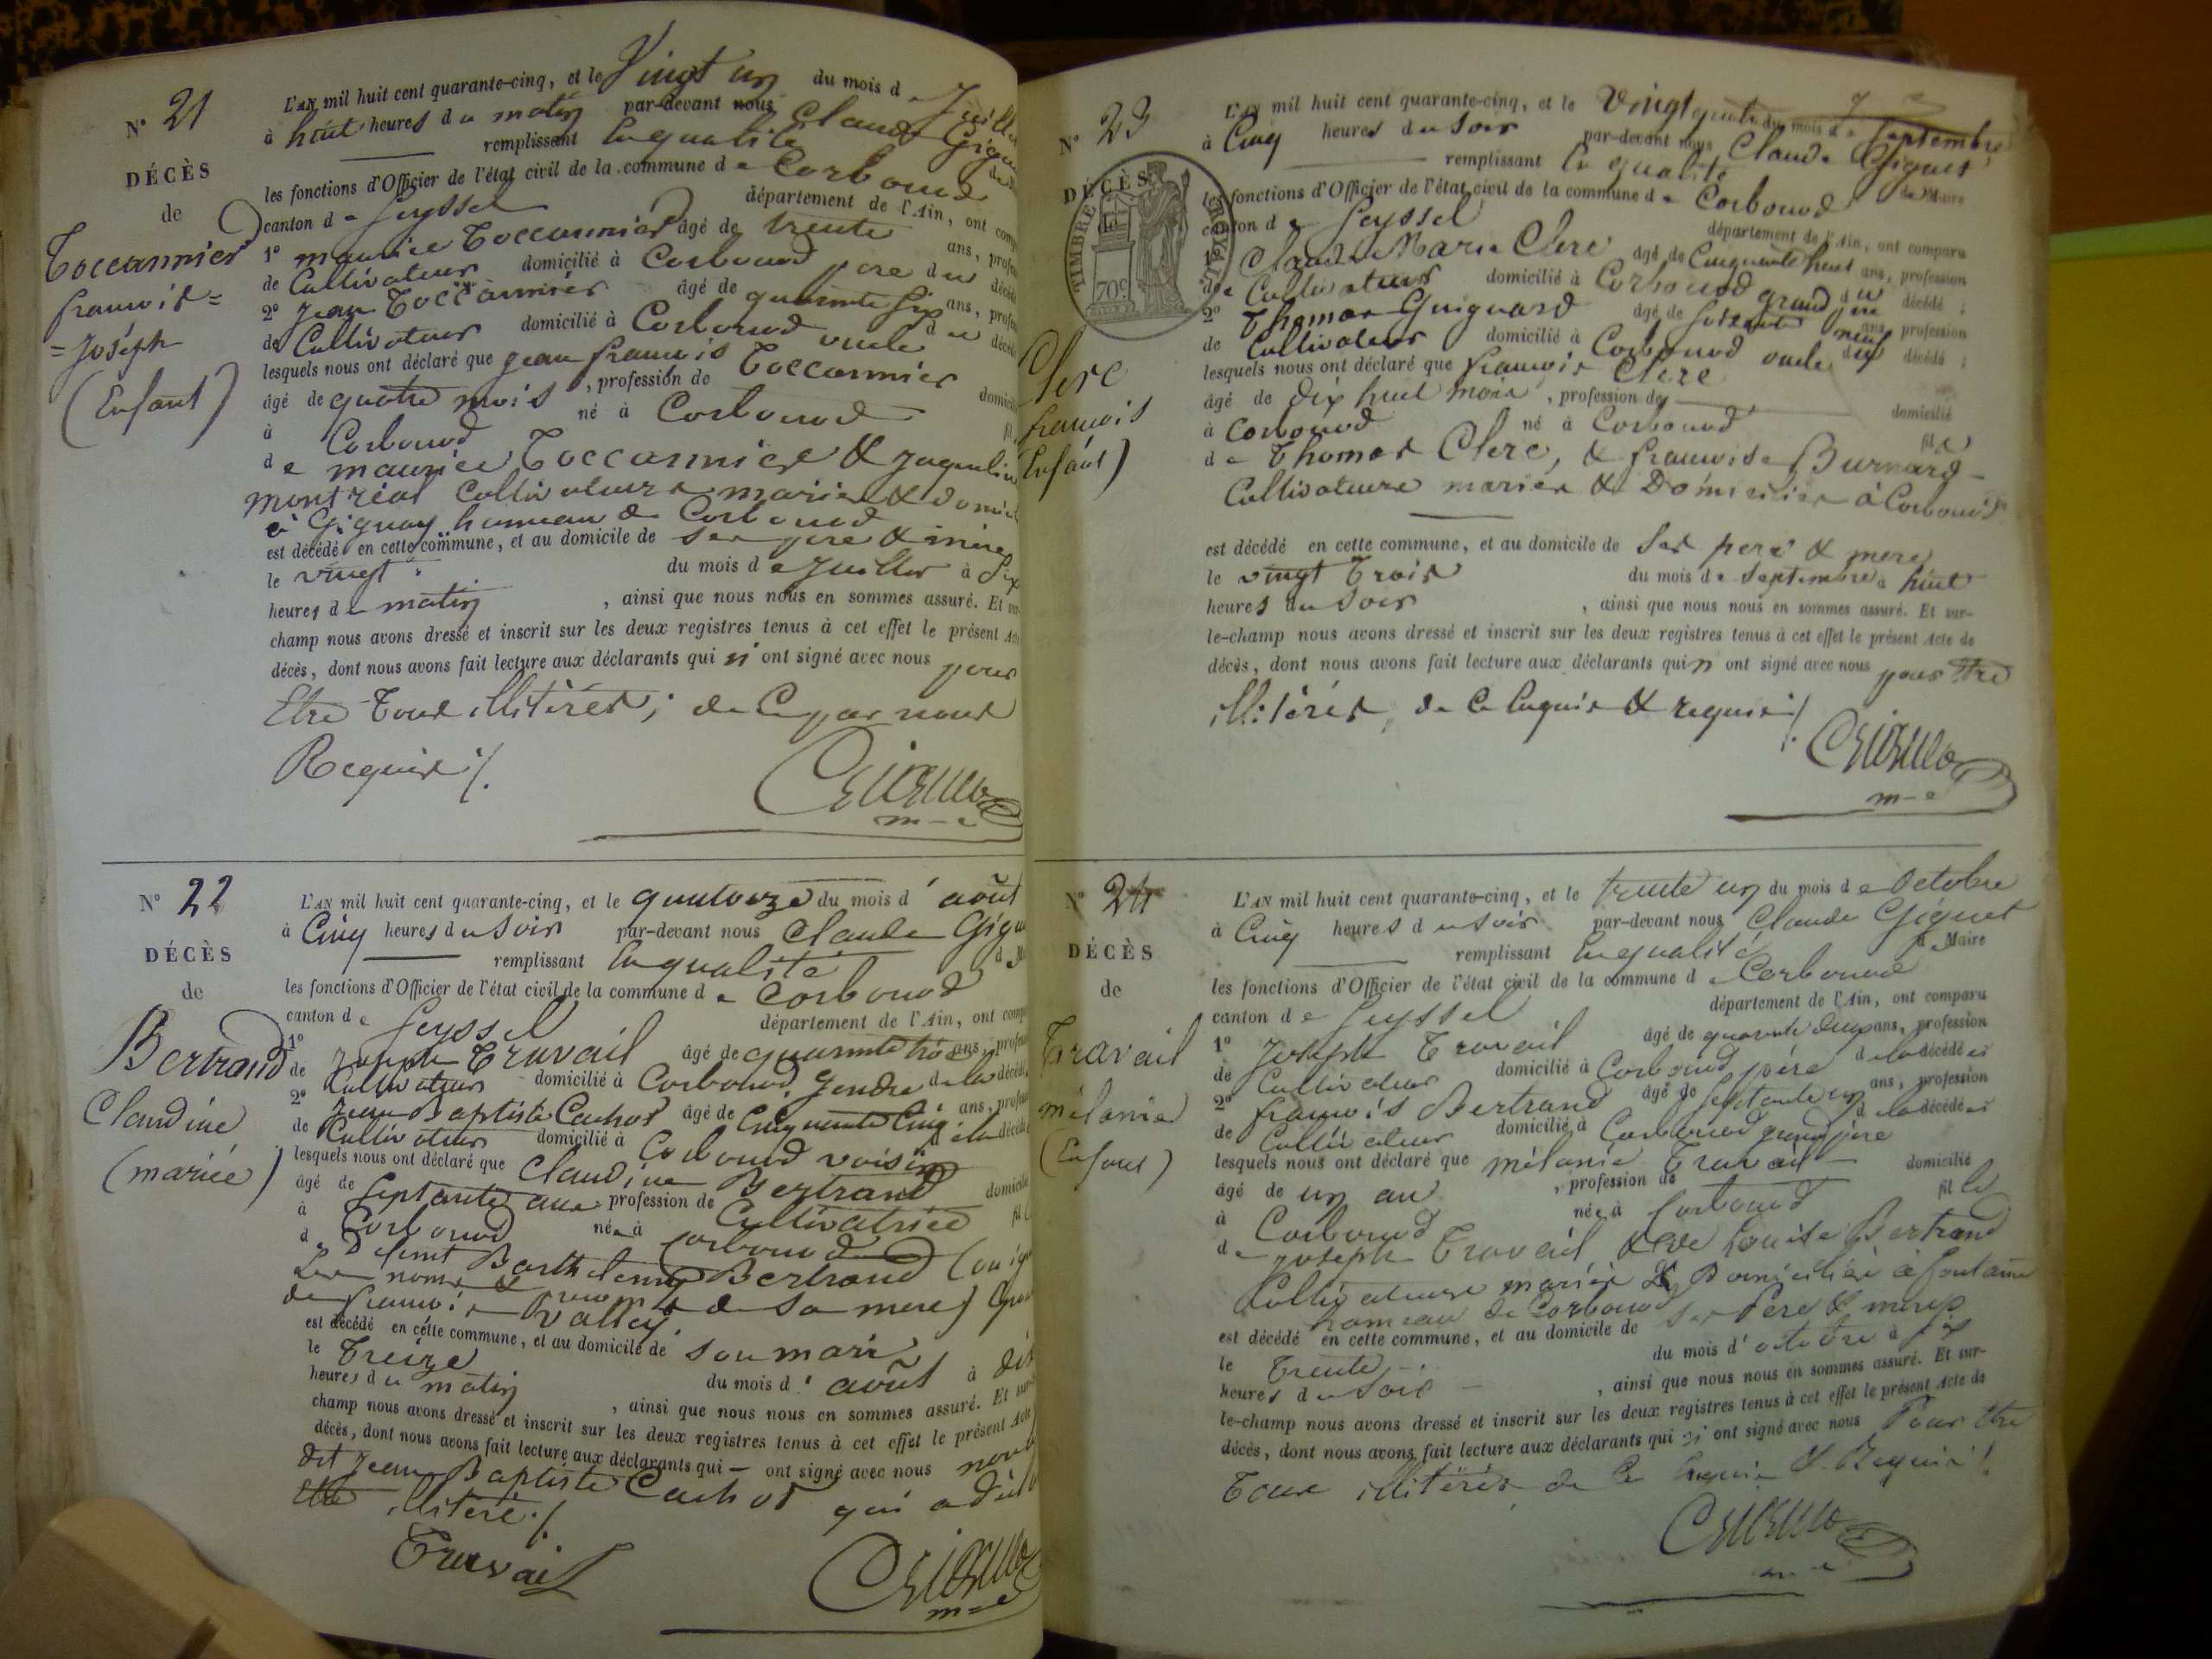 N° 21
DÉCÈS
de
Toccannier
françois=
=Joséph
(Enfant)
L'AN mil huit cent quarante-cinq, et le Vingt un du mois de Juillet
à huit heures du matin par-devant nous Claude
remplissant la qualité
les fonctions d'Officier de l'état civil de la commune de Corbonod
canton de Seyssel département de l'Ain, ont
1° maurice Toccannier âgé de trente ans,
de Cultivateur domicilié à Corbonod pere du
2° Jean Toccannier âgé de quarante six ans,
de Cultivateur domicilié à Corbonod oncle du
lesquels nous ont déclaré que jean françois Toccannier
âgé de quatre mois, profession de
à Corbonod né à Corbonod
de maurice Toccannier & Jaqueline
montréal Cultivateurs mariés &
à Gignay hameau de Corbonod
est décédé en cette commune, et au domicile de ses pere & mère
le vingt du mois de Juillet à Six
heures de matin, ainsi que nous nous en sommes assuré. Et sur-
champ nous avons dressé et inscrit sur les deux registres tenus à cet effet le présent Acte
décès, dont nous avons fait lecture aux déclarants qui n'ont signé avec nous pour
Etre tous illitérés; de Ce par nous
Requis ./.
N° 22
DÉCÈS
de
Bertrand
Claudine
(mariée)
L'AN mil huit cent quarante-cinq, et le quatorze du mois d'août
à Cinq heures du Soir par-devant nous Claude
remplissant la qualité
les fonctions d'Officier de l'état civil de la commune de Corbonod
canton de Seyssel département de l'Ain, ont
1° Joseph Travail âgé de quarante trois ans,
de Cultivateur domicilié à Corbonod, gendre de la
2° Jean Baptiste Cachot âgé de Cinquante Cinq ans,
de Cultivateur domicilié à Corbonod voisin
lesquels nous ont déclaré que Claudine Bertrand
âgé de Septante ans profession de Cultivatrice
à Corbonod née à Corbonod
de Défunt Barthelemy Bertrand
Les noms & prenoms de sa mere)
de françois Vallet
est décédé en cette commune, et au domicile de son mari
le Treize du mois d'août à dix
heures du matin, ainsi que nous nous en sommes assuré. Et sur-
champ nous avons dressé et inscrit sur les deux registres tenus à cet effet le présent Acte
décès, dont nous avons fait lecture aux déclarants qui — ont signé avec nous non le
dit Jean Baptiste Cachot qui a
Etre illiteré ./.
Travail
N° 23
DÉCÈS
de
TIMBRE ROYAL
70c
Clerc
françois
Enfant)
L'AN mil huit cent quarante-cinq, et le Vingt quatre du mois de Septembre
à Cinq heures du Soir par-devant nous Claude Giguet
remplissant la qualité de Maire
les fonctions d'Officier de l'état civil de la commune de Corbonod
canton de Seyssel département de l'Ain, ont comparu
1° Claude Marie Clerc âgé de Cinquante huit ans, profession
de Cultivateur domicilié à Corbonod grand pere du décédé;
2° Thomas Guignard âgé de soixante neuf ans, profession
de Cultivateur domicilié à Corbonod oncle du décédé;
lesquels nous ont déclaré que françois Clerc
âgé de dix huit mois, profession de — domicilié
à Corbonod né à Corbonod fils
de Thomas Clerc, & françoise Burnard
Cultivateurs mariés & Domiciliés à Corbonod
est décédé en cette commune, et au domicile de Ses pere & mere
le vingt Trois du mois de Septembre à huit
heures du Soir, ainsi que nous nous en sommes assuré. Et sur-
le-champ nous avons dressé et inscrit sur les deux registres tenus à cet effet le présent Acte de
décès, dont nous avons fait lecture aux déclarants qui n'ont signé avec nous pour être
illitérés, de Ce Enquis & requis ./.
N° 24
DÉCÈS
de
Travail
mélanie
(Enfant)
L'AN mil huit cent quarante-cinq, et le trente un du mois de Octobre
à Cinq heures du Soir par-devant nous Claude Giguet
remplissant la qualité de Maire
les fonctions d'Officier de l'état civil de la commune de Corbonod
canton de Seyssel département de l'Ain, ont comparu
1° Joseph Travail âgé de quarante deux ans, profession
de Cultivateur domicilié à Corbonod, père de la décédée
2° françois Bertrand âgé de Septante un ans, profession
de Cultivateur domicilié à Corbonod grand père de la décédée
lesquels nous ont déclaré que mélanie Travail — domicilié
âgé de un an, profession de
à Corbonod née à Corbonod fille
de Joseph Travail & de Louise Bertrand
Cultivateurs mariés & Domiciliés à fontaine
hameau de Corbonod
est décédé en cette commune, et au domicile de ses Pere & mere
le Trente du mois d'octobre à six
heures du Soir, ainsi que nous nous en sommes assuré. Et sur-
le-champ nous avons dressé et inscrit sur les deux registres tenus à cet effet le présent Acte de
décès, dont nous avons fait lecture aux déclarants qui n'ont signé avec nous Pour être
Tous illitérés de Ce Enquis & Requis ./.